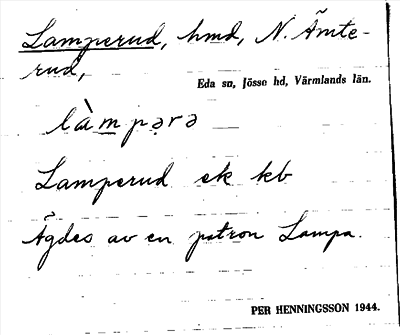 Lamperud, hmd, N. Ämte-
rud,
Eda sn, Jösse hd, Värmlands län.
làmpərə
Lamperud ek kb
Ägdes av en patron Lampa.
PER HENNINGSSON 1944.